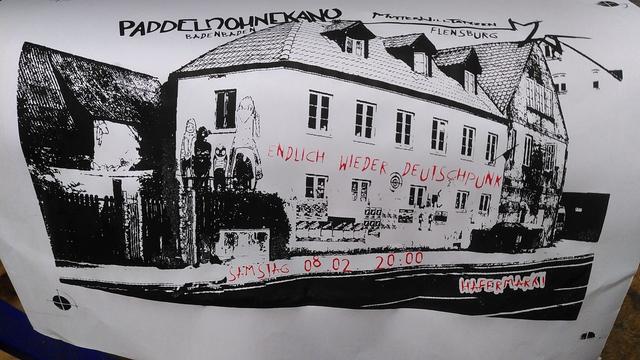 PADDELNOHNEKANU
BADENBADEN
FLENSBURG
ENDLICH WIEDER DEUTSCHPUNK
SAMSTAG 08.02 20:00
HAFERMARKT